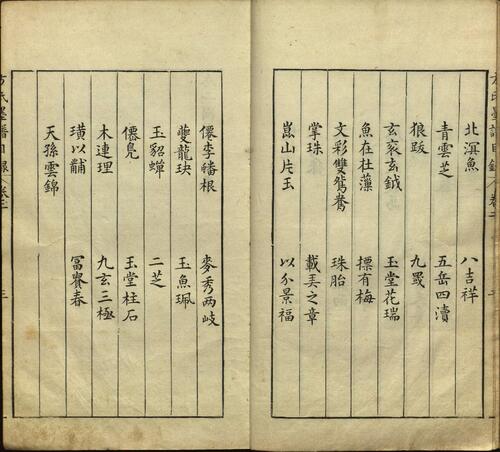 北溟魚 八吉祥
青雲芝 五岳四瀆
狼跋 九罭
玄袞玄鉞 玉堂花瑞
魚在杜藻 摽有梅
文彩雙鴛鴦 珠胎
掌珠 載美之章
崑山片玉 以介景福
僊李蟠根 麥秀两岐
夔龍玦 玉魚珮
玉貂蟬 二芝
僊鳧 玉堂柱石
木連理 九玄三極
璜以黼 冨賽春
天孫雲錦
方氏墨譜目録 卷三